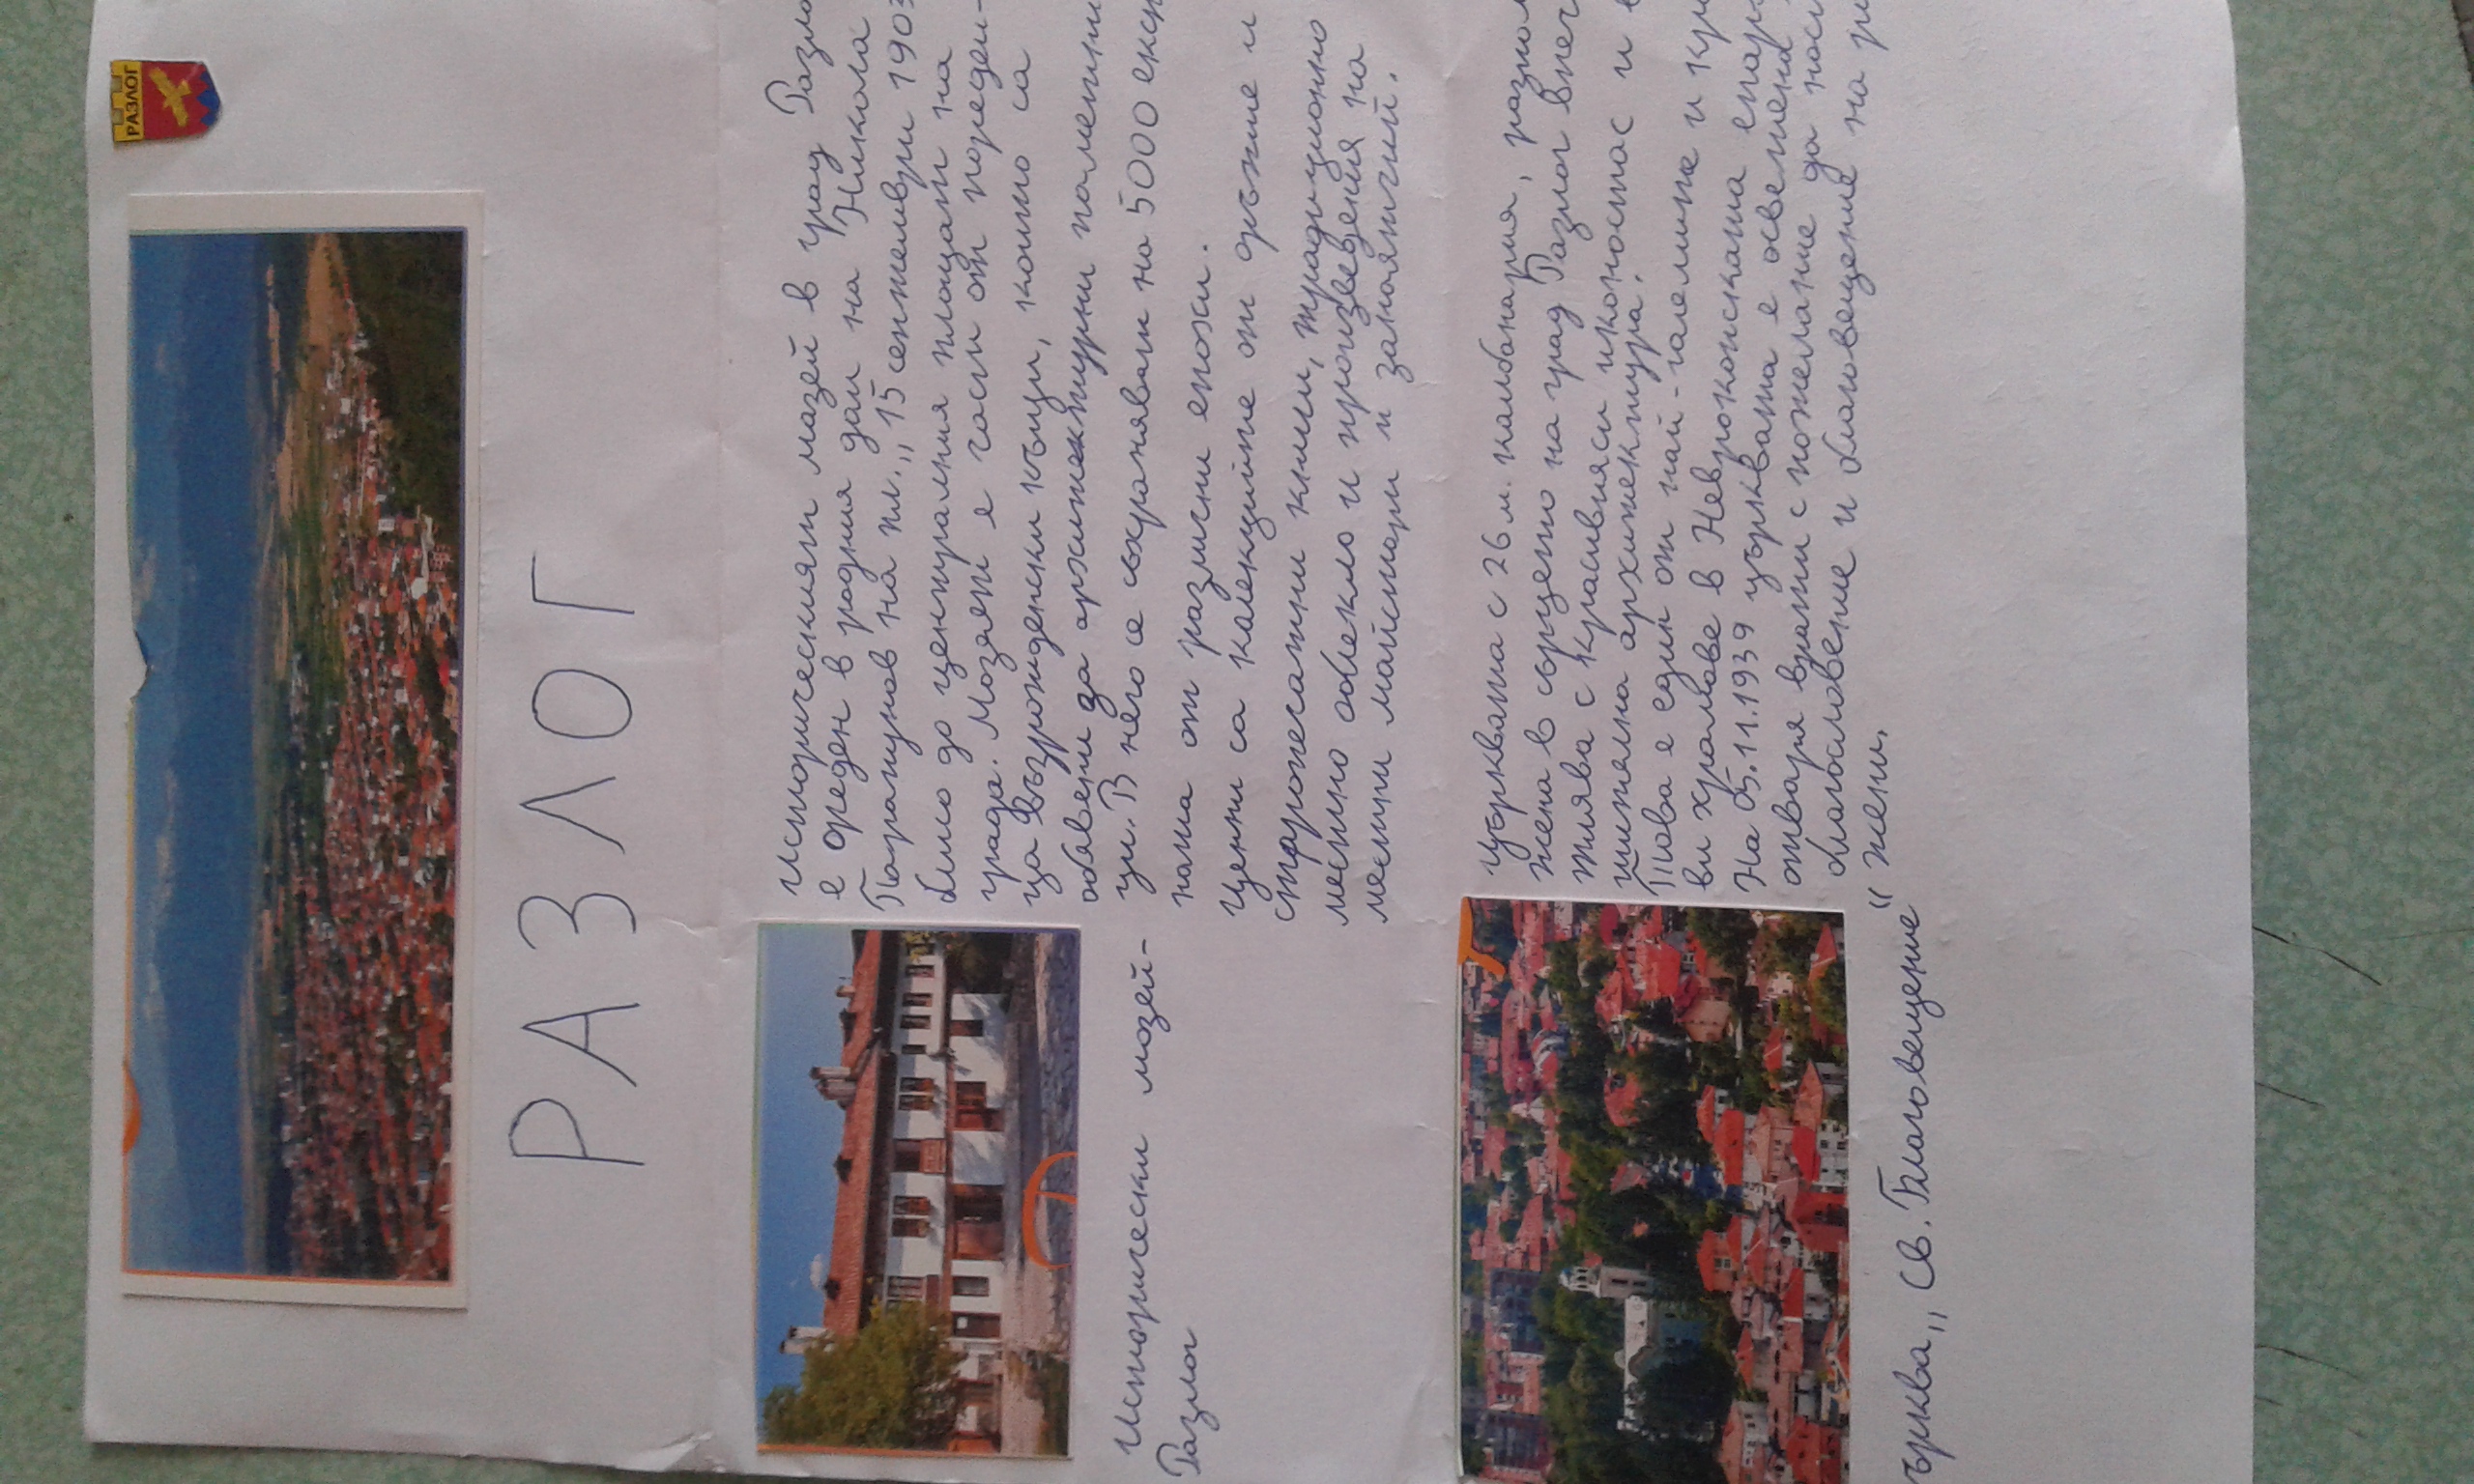 РАЗЛОГ
РАЗЛОГ
Историческият мазей в град
е ореден в родния дом на Никола
Парапунов на пл. „15 септември 1903
било до централния площат на
града. Мозеят е гост от пореди-
ца възрожденски къщи, които са
обявени за архитектурни
ци. В него се съхраняват но 5000
ната от различни епохи.
Ценни са калекцийте от оръжие и
старопечатни книги, традиционно
местно облекло и произведения на
местни майстори и занаятчий.
Исторически мозей-
Разлог
Църквата с 26 м. камбанария,
жена в сърцето на град Разлог
тлява с красивият иконостас и
тителна архитектура.
Това е един от най-големите и
ви храмове в Неврокопската
На 05.11.1939 църквата е осветена
отваря врати с пожелание да
благословение и благовещение на
жени.
„ Св. Благовещение “